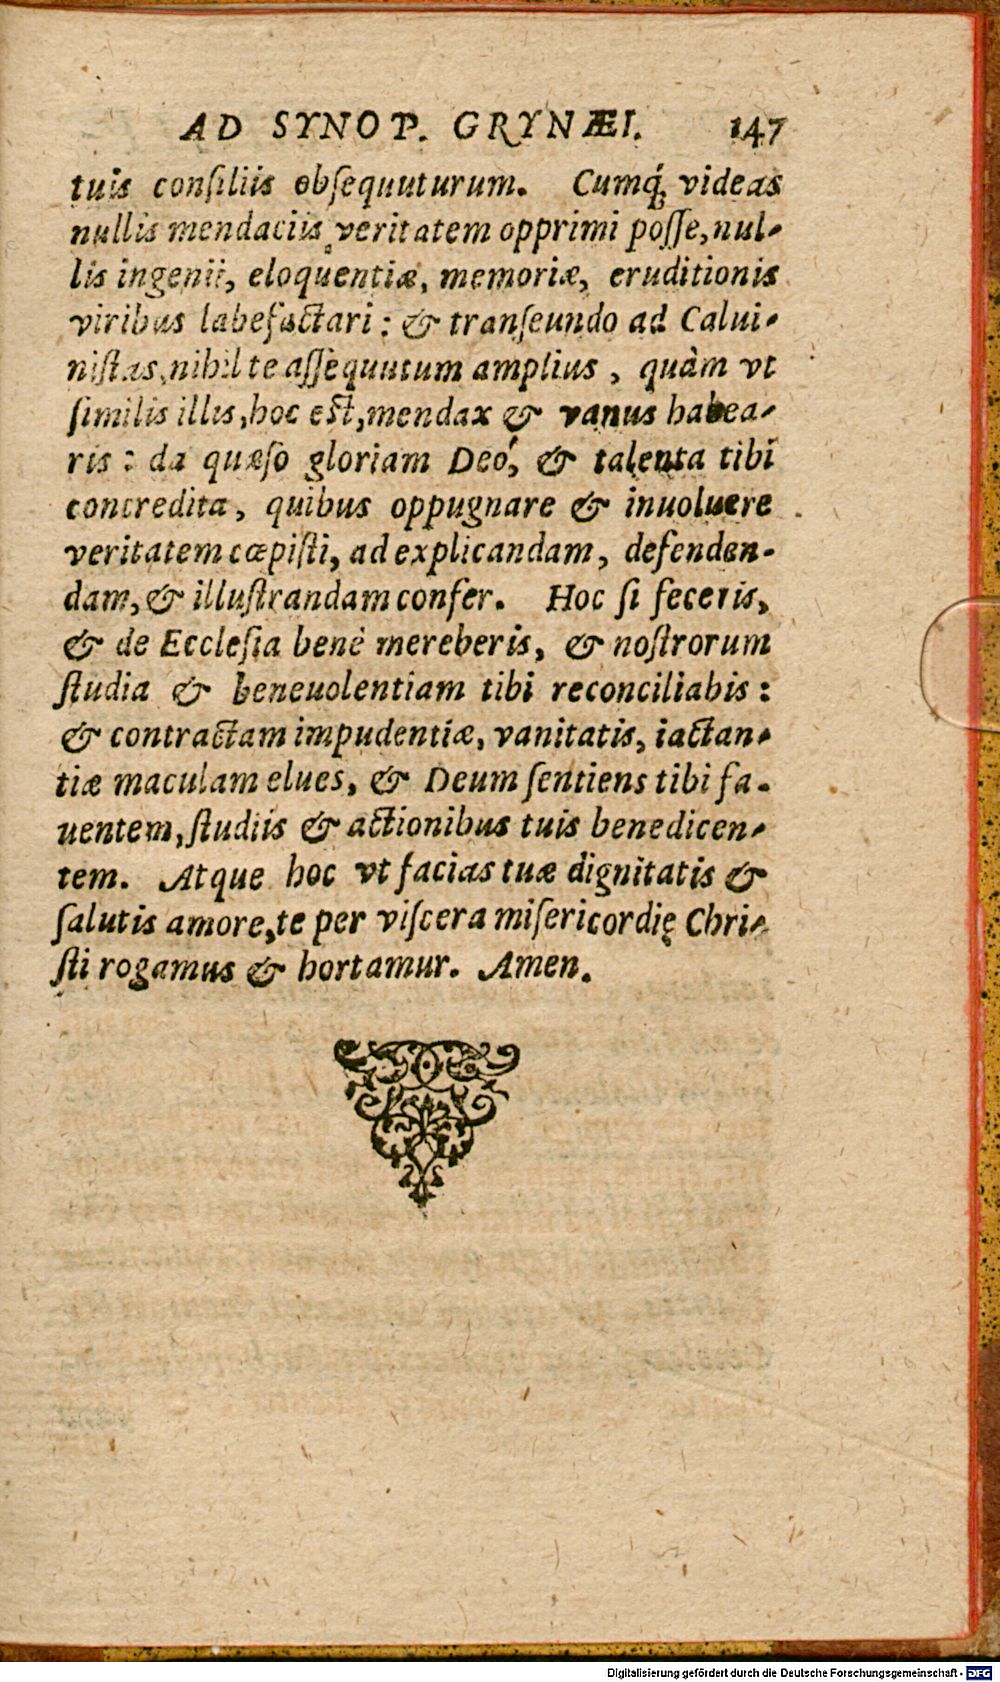 AD SYNOP. GRYNÆI. 147
tuis conſiliis obſequuturum. Cumq; videas
nullis mendaciis veritatem opprimi poſſe, nul-
lis ingenii, eloquentiæ, memoriæ, eruditionis
viribus labefactari: & tranſeundo ad Calui-
niſtas, nihil te aſſequutum amplius, quàm vt
ſimilis illis, hoc eſt, mendax & vanus habea-
ris: da quæſo gloriam Deo, & talenta tibi
concredita, quibus oppugnare & inuoluere
veritatem cœpiſti, ad explicandam, defenden-
dam, & illuſtrandam confer. Hoc ſi feceris,
& de Eccleſia benè mereberis, & noſtrorum
ſtudia & beneuolentiam tibi reconciliabis:
& contractam impudentiæ, vanitatis, iactan-
tiæ maculam elues, & Deum ſentiens tibi fa-
uentem, ſtudiis & actionibus tuis benedicen-
tem. Atque hoc vt facias tuæ dignitatis &
ſalutis amore, te per viſcera miſericordię Chri-
ſti rogamus & hortamur. Amen.
Digitalisierung gefördert durch die Deutsche Forschungsgemeinschaft - DFG